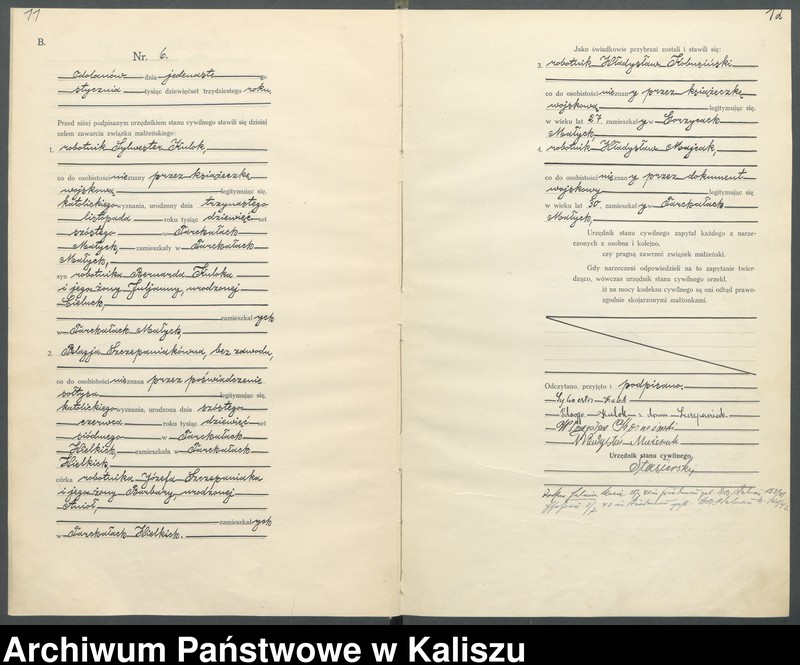 11
B.
Nr. 6.
Odolanów dnia jedenaste go
stycznia tysiąc dziewięćset trzydziestego roku,
Przed niżej podpisanym urzędnikiem stanu cywilnego stawili się dzisiaj
celem zawarcia związku małżeńskiego:
1. robotnik Sylwester Kulok,
co do osobistości nieznany przez książeczkę
wojskową legitymując się,
katolickiego wyznania, urodzony dnia trzynastego
listopada roku tysiąc dziewięć set
szóstego w Tarchałach
Małych, zamieszkały w Tarchałach
Małych,
syn robotnika Bernarda Kuloka
i jego żony Juljanny, urodzonej
zamieszkał ych
w Tarchałach Małych,
2. Pelagja Szczepaniakówna, bez zawodu,
co do osobistości nieznana przez poświadczenie
sołtysa legitymując się,
katolickiego wyznania, urodzona dnia szóstego
czerwca roku tysiąc dziewięć set
siódmego w Tarchałach
Wielkich, zamieszkała w Tarchałach
Wielkich,
córka robotnika Józefa Szczepaniaka
i jego żony Barbary, urodzonej
Anioł,
zamieszkał ych
w Tarchałach Wielkich.
12
Jako świadkowie przybrani zostali i stawili się:
3. robotnik Władysław
co do osobistości nieznan y przez książeczkę
wojskową legitymując się,
w wieku lat 27, zamieszkał y w Gorzycach
Małych,
4. robotnik Władysław Majcak,
co do osobistości nieznan y przez dokument
wojskowy legitymując się,
w wieku lat 30, zamieszkał y w Tarchałach
Małych,
Urzędnik stanu cywilnego zapytał każdego z narze-
czonych z osobna i kolejno,
czy pragną zawrzeć związek małżeński.
Gdy narzeczeni odpowiedzieli na to zapytanie twier-
dząco, wówczas urzędnik stanu cywilnego orzekł,
iż na mocy kodeksu cywilnego są oni odtąd prawo-
zgodnie skojarzonymi małżonkami.
Odczytano, przyjęto i podpisano.
Sylwester Kulok
Pelagja Kulok z domu Szczepaniak
Władysław
Władysław
Urzędnik stanu cywilnego,
Stasierski
Archiwum Państwowe w Kaliszu